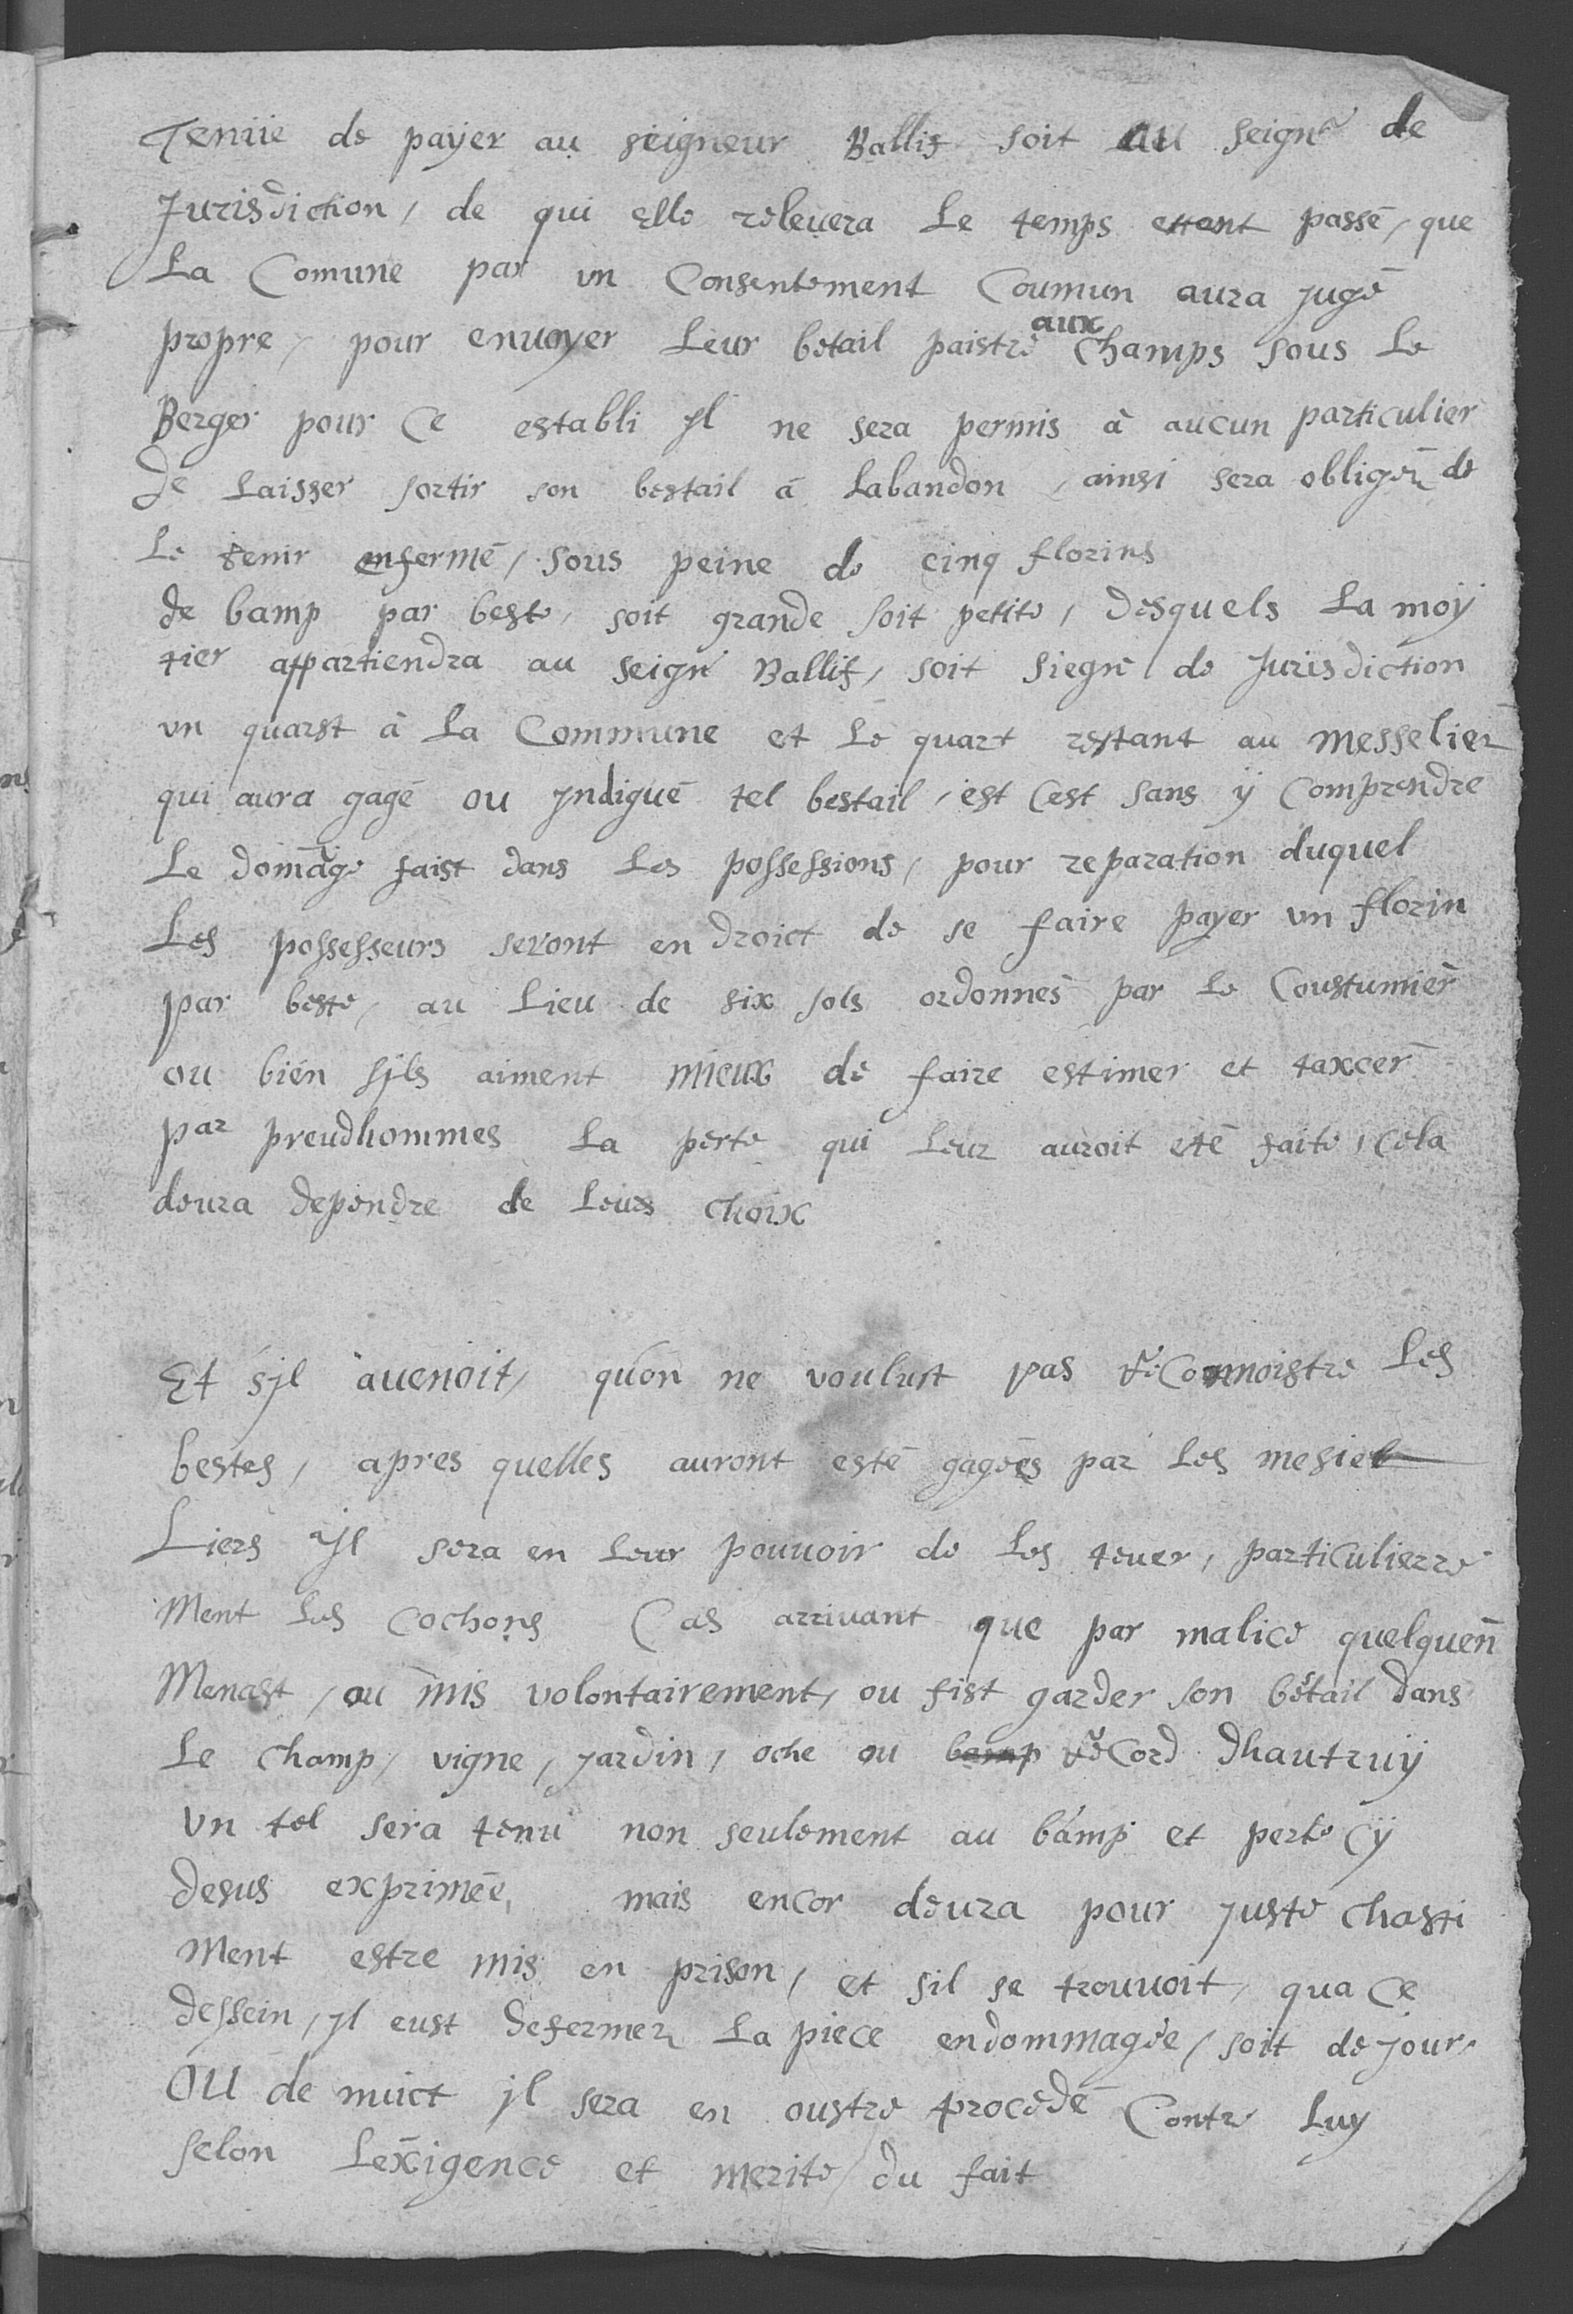 Tenüe de payer au seigneur Ballif soit au seignr de
Jurisdiction, de qui elle releuera Le temps ettant passé, que
La Comune par vn Consentement Coumun aura jugé
propre, pour enuoyer Leur betail paistre aux Champs sous Le
Berger pour Ce establi jl ne sera permis à aucun particulier
de Laisser sortir son bestail à Labandon, ainsi sera obliger de
Le tenir enfermé, sous peine de cinq florins
de bamp par beste, soit grande soit petite, desquels La moÿ
tier appartiendra au seignr Ballif, soit siegnr de Jurisdiction
vn quarst à La Commune et Le quart restant au messelier
qui aura gagé ou jndigué tel bestail, est Cest sans ÿ Comprendre
Le domage faist dans Les possessions, pour reparation duquel
Les possesseurs seront en droict de se faire payer vn florin
par beste, au Lieu de six sols ordonnés par Le Coustumier
ou bien sjls aiment mieux de faire estimer et taxcer
par preudhommes La perte qui Leur auroit eté faite, Cela
deura dependre de Leurs choix
Et sjl auenoit, quon ne voulust pas reConnoistre Les
bestes, apres quelles auront esté gagées par Les mesiel
Liers jl sera en Leur pouuoir de Les tuer, particulierre
Ment Les Cochons Cas arriuant que par malice quelquen
Menast, ou mis volontairement, ou fist garder son bétail dans
Le champ, vigne, jardin, oche ou bamp reCord dhautruÿ
Vn tel sera tenu non seulement au bamp et perte Cÿ
desus exprimée, mais encor deura pour juste Chasti
Ment estre mis en prison, et sil se trouuoit, qua Ce
dessein, jl eust defermer La piece endommagée, soit de jour,
OU de nuict jl sera en oustre procedé Contre Luy
selon Lexigence et merite du fait